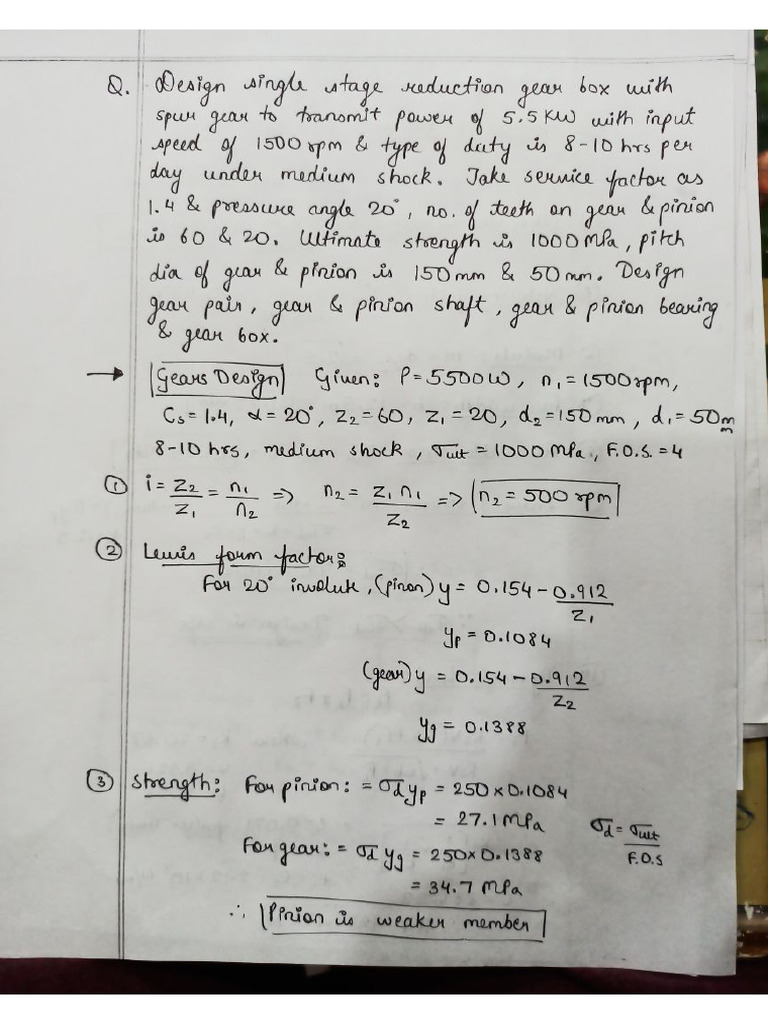 Q. Design single stage reduction gear box with
spur gear to transmit power of 5.5 KW with input
speed of 1500 rpm & type of duty is 8-10 hrs per
day under medium shock. Take service factor as
1.4 & pressure angle 20°, no. of teeth on gear & pinion
is 60 & 20. Ultimate strength is 1000 MPa, pitch
dia of gear & pinion is 150 mm & 50 mm. Design
gear pair, gear & pinion shaft, gear & pinion bearing
& gear box.
→ Gears Design Given: P = 5500 W, n₁ = 1500 rpm,
Cs = 1.4, α = 20°, Z₂ = 60, Z₁ = 20, d₂ = 150 mm, d₁ = 50 mm
8-10 hrs, medium shock, σult = 1000 MPa, F.O.S. = 4
① i = Z₂/Z₁ = n₁/n₂ => n₂ = Z₁ n₁/Z₂ => n₂ = 500 rpm
② Lewis form factor:
For 20° involute, (pinon) y = 0.154 - 0.912/Z₁
yp = 0.1084
(gear) y = 0.154 - 0.912/Z₂
yg = 0.1388
③ Strength: For pinion: = σd yp = 250 × 0.1084
= 27.1 MPa σd = σult/F.O.S
For gear: = σd yg = 250 × 0.1388
= 34.7 MPa
∴ Pinion is weaker member